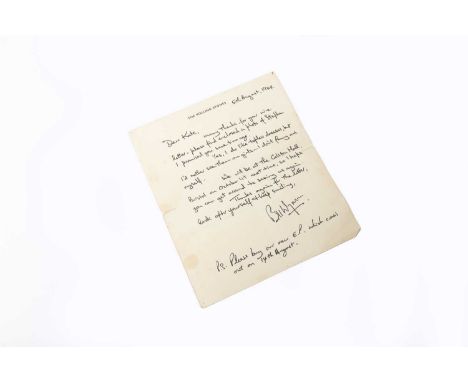 THE ROLLING STONES
5th August, 1964
Dear Kate, many thanks for your nice
letter, please find enclosed a photo of Stephen
I promised you some time ago.
Yes, I do like topless dresses but
I'd rather see them on girls - I don't fancy one
myself. We will be at the Colston Hall
Bristol on October so I hope
you can get around to seeing us again
Thanks again for the letter,
look after yourself & keep smiling,
Bill Wyman
P.S. Please buy our new E.P. which comes
out on August.